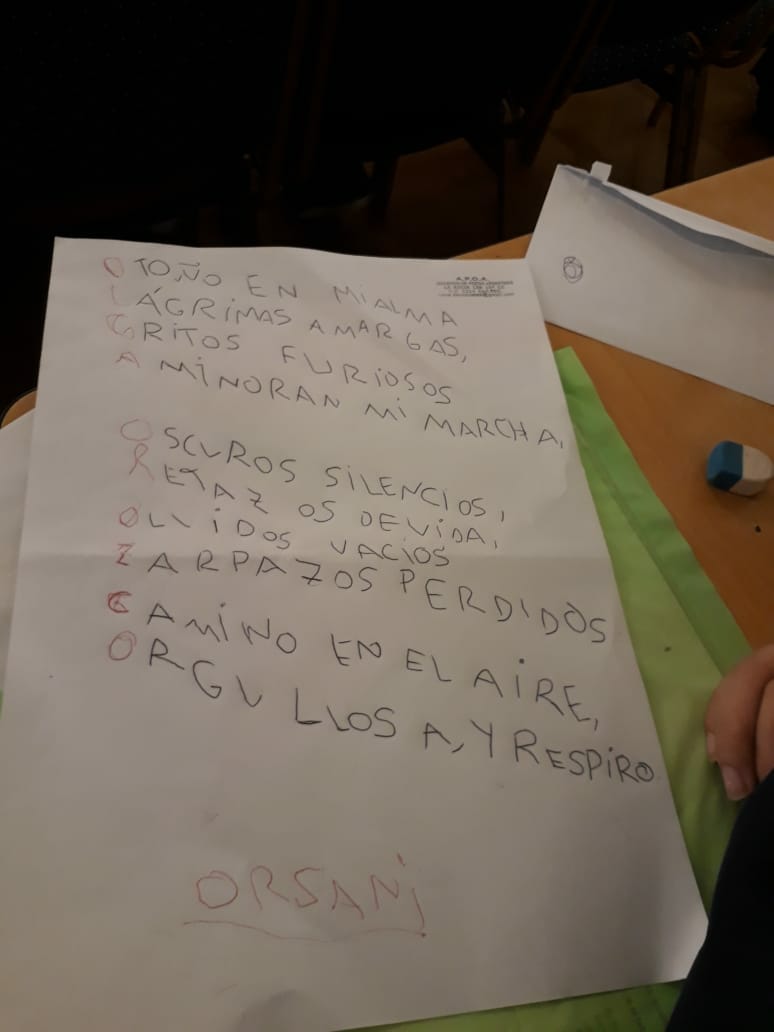 OTOÑO EN MI ALMA
LÁGRIMAS AMARGAS,
GRITOS FURIOSOS
AMINORAN MI MARCHA,
OSCUROS SILENCIOS,
RETAZOS DE VIDA,
OLVIDOS VACIOS
ZARPAZOS PERDIDOS
CAMINO EN EL AIRE,
ORGULLOSA, Y RESPIRO
ORSANJ
A.P.O.A.